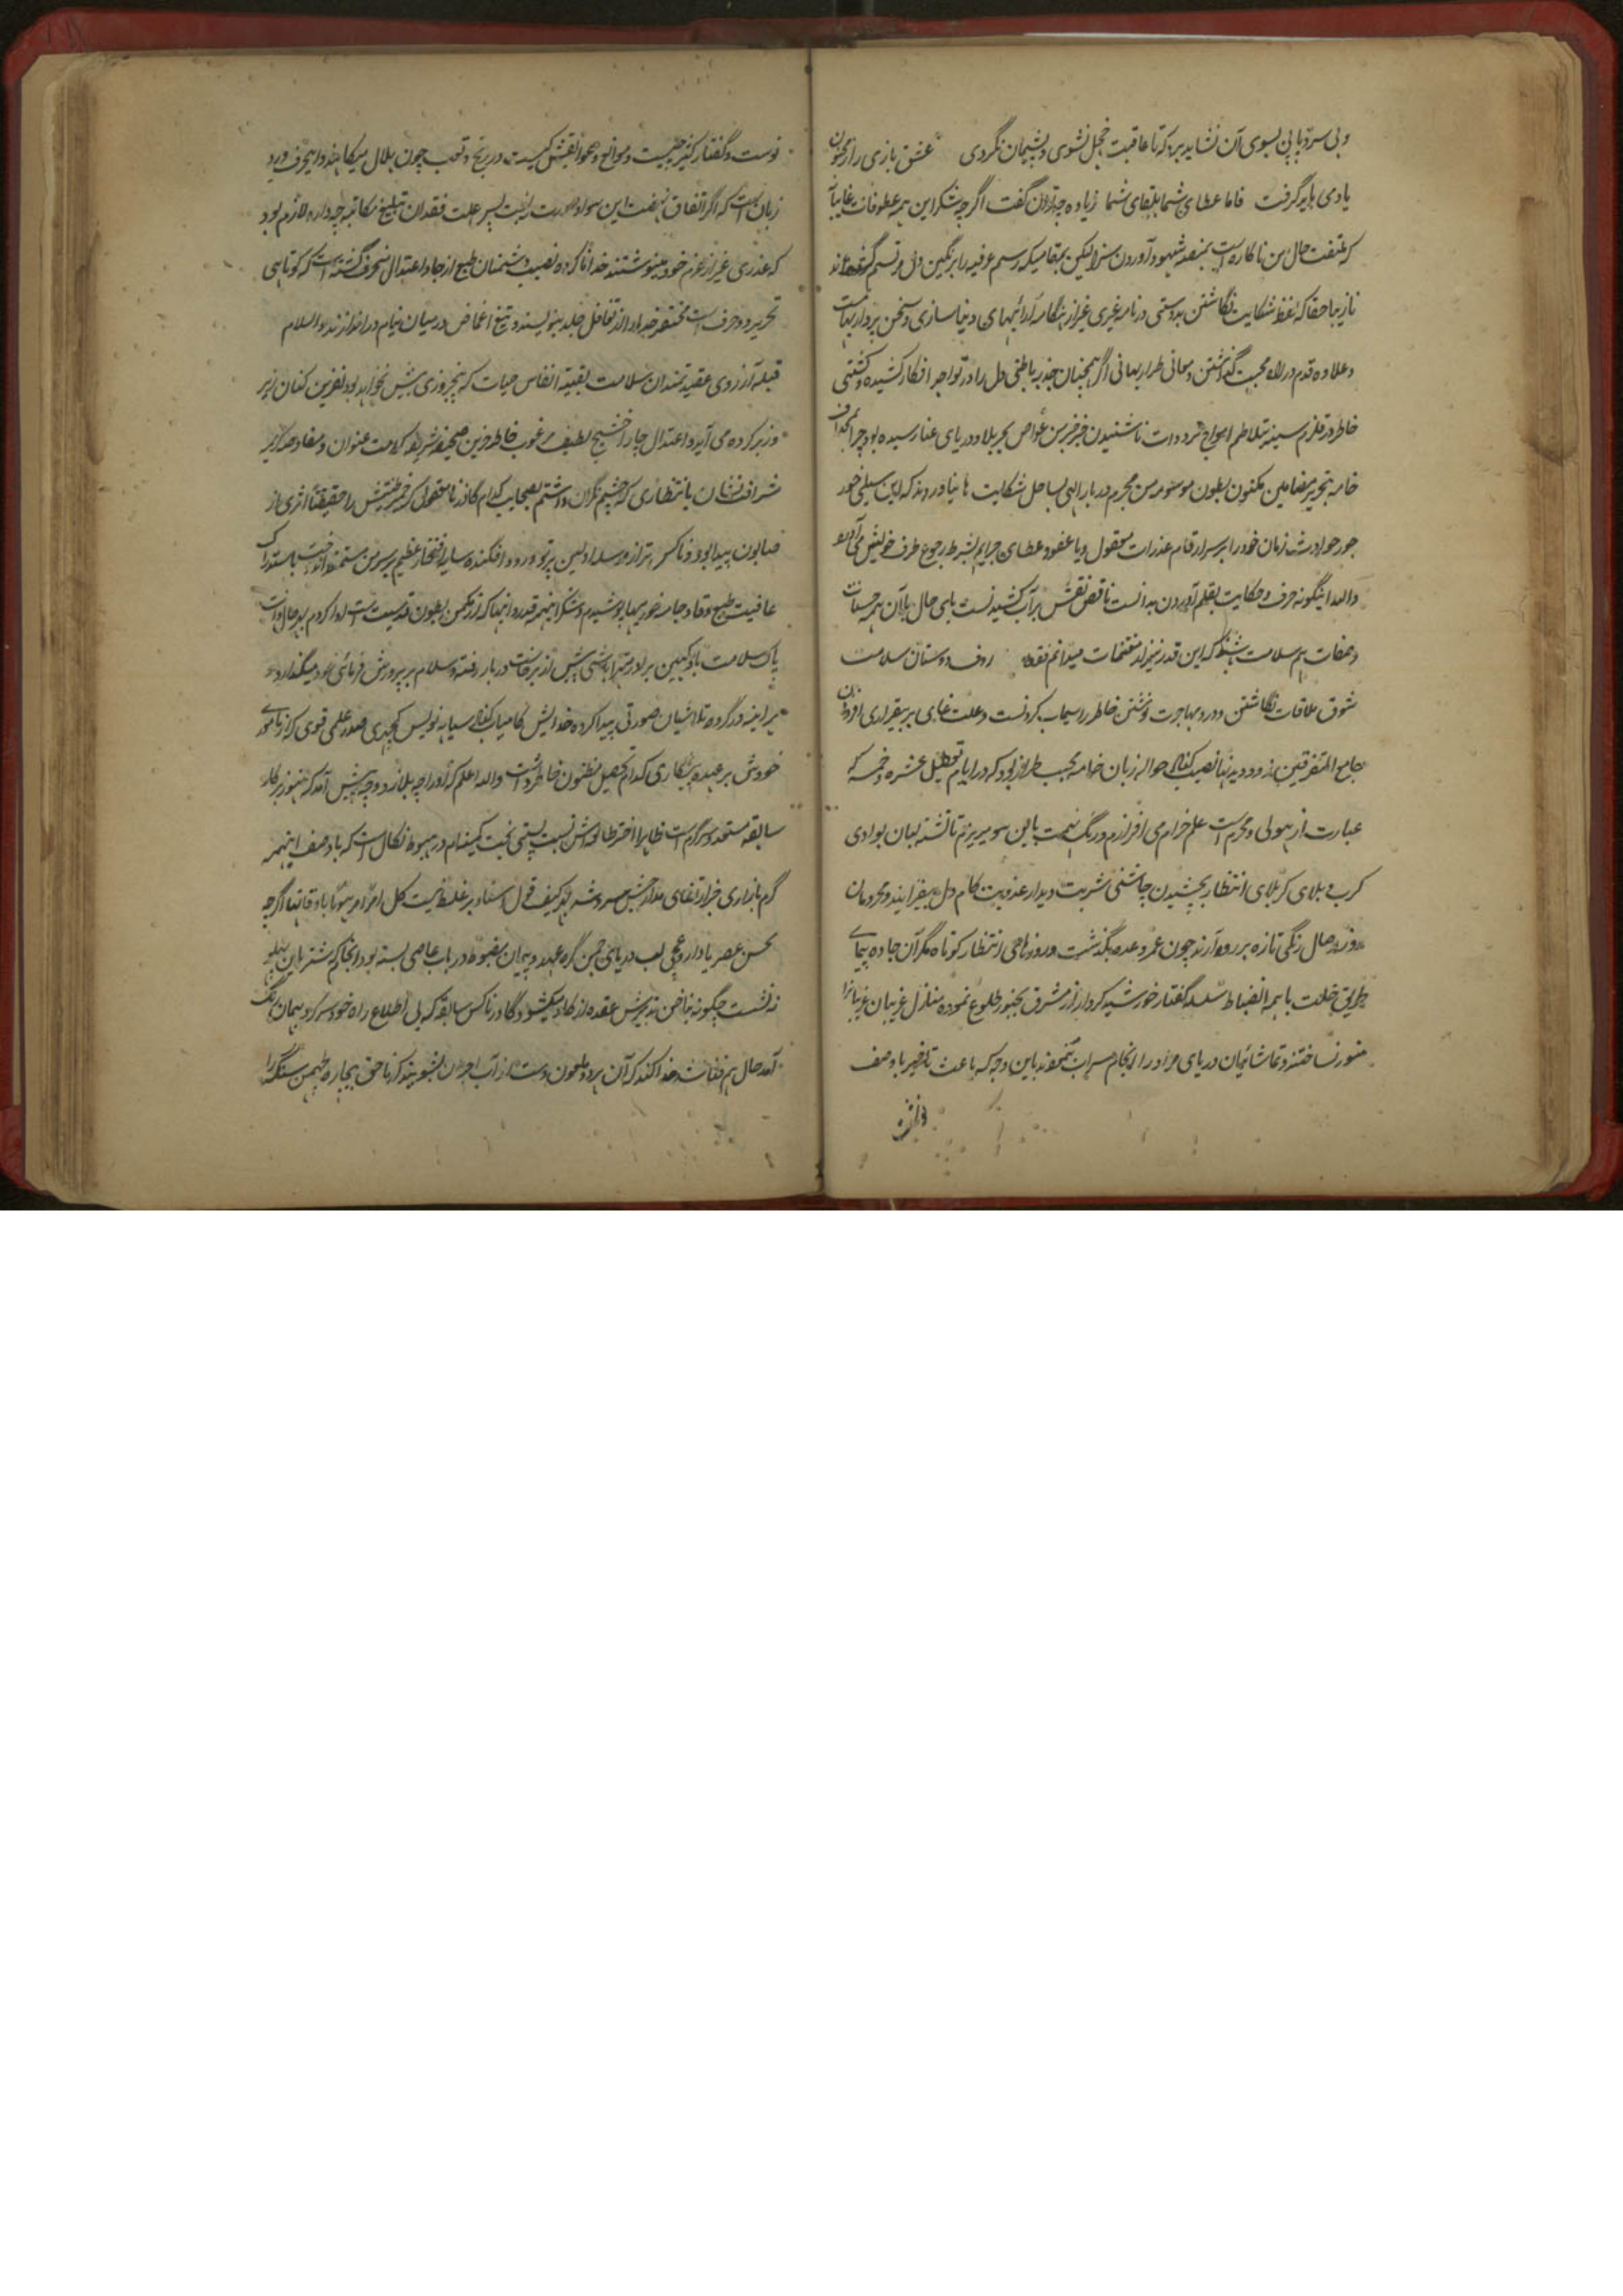 و بی سر و پا پی بسوی آن نشاید برد که تا عاقبت خجل نشوی و پشیمان نگردی عشق بازی را از مجنون
یادمی باید گرفت فاما عطای شما بلقای شما زیاده چه توان گفت اگر چه شکر این همه عطوفات غایبا
که ملتفت حال من ناکاره است بمنصه شهود آوردن سزا لیکن بمقامیکه رسم عرفیه را بر نگین دل مرتسم
نازیبا حقا که لفظ شکایت نگاشتن بدوستی در نامه غیری غیر از هنگامه آرائیهای دنیا سازی و سخن پردازیهاست
و علاوه قدم در راه محبت گذاشتن و معانی طراز بهانی اگر همچنان جذب باطنی دل را در تواجد افکار کشیده و کشتی
خاطر در قلزم سینه بتلاطم امواج ترددات ناشنیدن خبر خیر من غواص بحر بلا و دریای عنا رسیده بود چرا
خامه بتحریر مضامین مکنون بطون موسومه من مجرم دربار الهی بساحل شکایت ها نیاوردند که این سیلی خور
جور حوادث زمان خود را بر سر ارقام عذرات معقول و یا عفو و عطای جرایم بشرط رجوع طرف خویش می
والله اینگونه حرف و حکایت بقلم آوردن به دانست ناقص نقش بر آب کشیدنست باری حال بآن همه حسنات
و صفات هم سلامت باشند که این قدر نیز از مغتنمات میدانم فقط رؤف دوستان سلامت
شوق ملاقات نگاشتن و درد مهاجرت نوشتن خاطر را سیماب کردنست و علت غایی بر بیقراری افزودن
جامع المتفرقین زود دیدنها نصیب کناد حواله زبان خامه عجب طراز بود که در ایام تعطیل عشره و خمسه که
عبارت از هولی و محرم است علم خرام می افرازم و رنگ نهضت باین سو میریزم تا تشنه لبان بوادی
کرب و بلای کربلای انتظار بچشیدن چاشنی شربت دیدار عذوبت کام دل بیفزایند و محرومان
روز وصال رنگی تازه بر رو آرند چون عمر وعده بگذشت و روز و ماهی انتظار کوتاه مگر آن جاده پیمای
طریق خلت با همه انضباط سلسله گفتار خورشید کردار از مشرق بجنور طلوع نموده منازل غریبان غریبانرا
منور نساختند و تماشائیان دریای مراد را انجام سراب نمودند باین وجه که باعث تاخیر با وصف
تواست و گفتار کثیر چیست و موانع و عوائقش کیست در رنج و تعب چون بلال میکاهند و این حرف ورد
زبان است که اگر اتفاق نهضت این سو او صورت نیست پس علت فقدان تبلیغ مکاتبه چه داره لازم بود
که عذری غیر از عزم خود مینوشتند خدا ناکرده نصیب دشمنان طبع از جاده اعتدال منحرف گشته است که کوتاهی
تحریر دو حرف است مختصر خدا را از تغافل جلد بنویسند و تیغ اغماض در میان نیام در اندازند والسلام
قبله آرزوی عقیدتمندان سلامت بقیة انفاس حیات که پنجروزی بیش نخواهد بود نفرین کنان زیر
و زبر کرده می آید و اعتدال چار اخشیج لطیف مرغوب خاطر حزین صحیفه شریفه کرامت عنوان و مفاوضه
شرافت نشان بانتظاری که چشم نگران داشتم بصحابت کدام گاذر نامعقول که خمیر طینتش را حقیقتا اثری از
صابون پیدا بود و ناکس تر از و سداولین پرتو ورود افکنده سایه افتخار عظیم بر سر من مستمند انداخت
عافیت طبع وقاد جامه خرمیها پوشیدم و شکر اینهمه قدردانیها که از مکمن بطون قدسیت است ادا کردم
پاک سلامت باد کمین برادر شما پیش از برخاست دربار رفته و سلام بر پرورش فرمائی خود میگذارد
هر آینه در گروه تلاشیان صورتی پیدا کرده خدایش کامیاب کناد سیاهه نویس کچهری صدر علمی قوی که از ناموری
خودش بر عهده پیشکاری کدام تحصیل مظنون خاطر داشت والله اعلم که او را چه بلا زد و چه پیش آمد که هنوز بر کار
سابقه مستعد و سرگرم است ظاهرا اختر طالعش نسبت پستی بخت کمینه ام در هبوط نکال است که با وصف اینهمه
گرم بازاری خبر ارتقای مدارجش مسرد شد بهر کیف قول استاد بر غلط نیست کل امر مرهونا باوقاتها اگر چه
محسن عصر یا داروغه لب دریای جمن گره عهد و پیمان مضبوط در باب عاصی بسته بود و انجا که شتر باین پهلو
نه نشست چگونه بناخن تدبیرش عقده از کار میکشود گاذر ناکس سابقه که بی اطلاع راه خود سر کرد بهمان رنگ
آمد حال هم غنیمت خدا کند که آن مردود ملعون دست از آب جمن بشوید که ناحق بیچاره همچمن سنگ را
نوشت